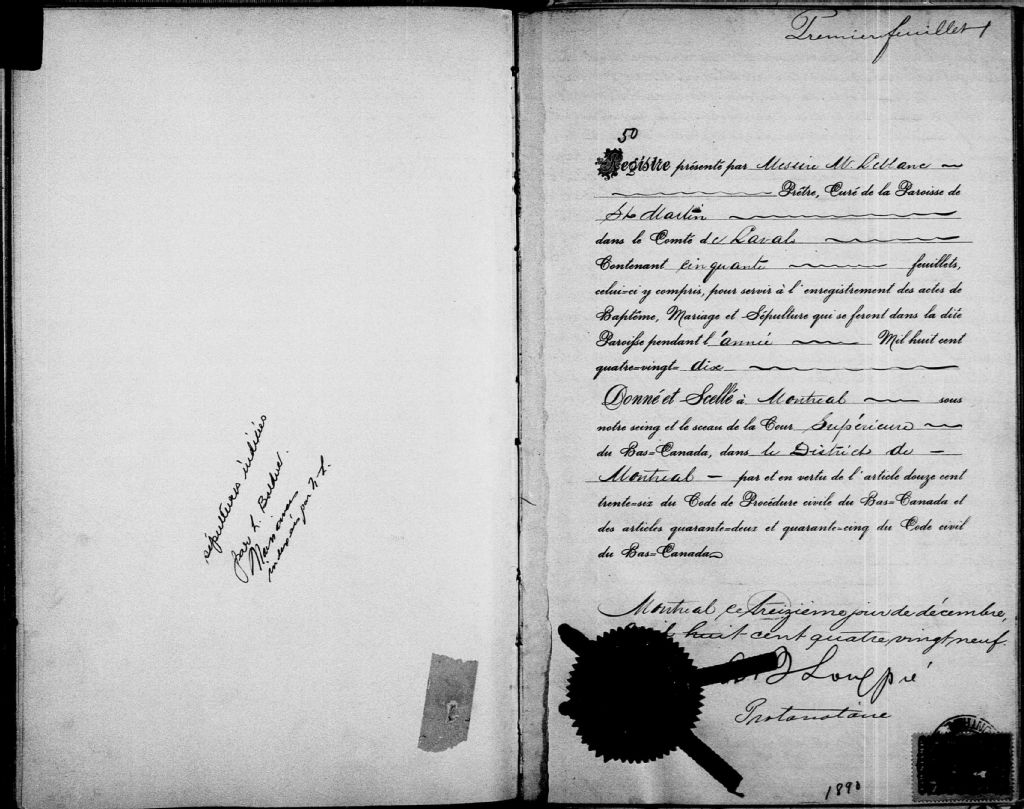 sépultures indexées
par L. Bolduc.
Mariages
indexés par
Premier feuillet
50
Registre présenté par Messire M. Leblanc
Prêtre, Curé de la Paroisse de
St Martin
dans le Comté de Laval
Contenant cinquante feuillets,
celui-ci y compris, pour servir à l'enregistrement des actes de
Baptême, Mariage et Sépulture qui se feront dans la dite
Paroisse pendant l'année Mil huit cent
quatre-vingt-dix
Donné et Scellé à Montreal sous
notre seing et le sceau de la Cour Supérieure
du Bas-Canada, dans le District de
Montreal par et en vertu de l'article douze cent
trente-six du Code de Procédure civile du Bas-Canada et
des articles quarante-deux et quarante-cinq du Code civil
du Bas-Canada
Montreal ce treizième jour de décembre,
huit cent quatre vingt neuf.
Longpré
Protonotaire
1890